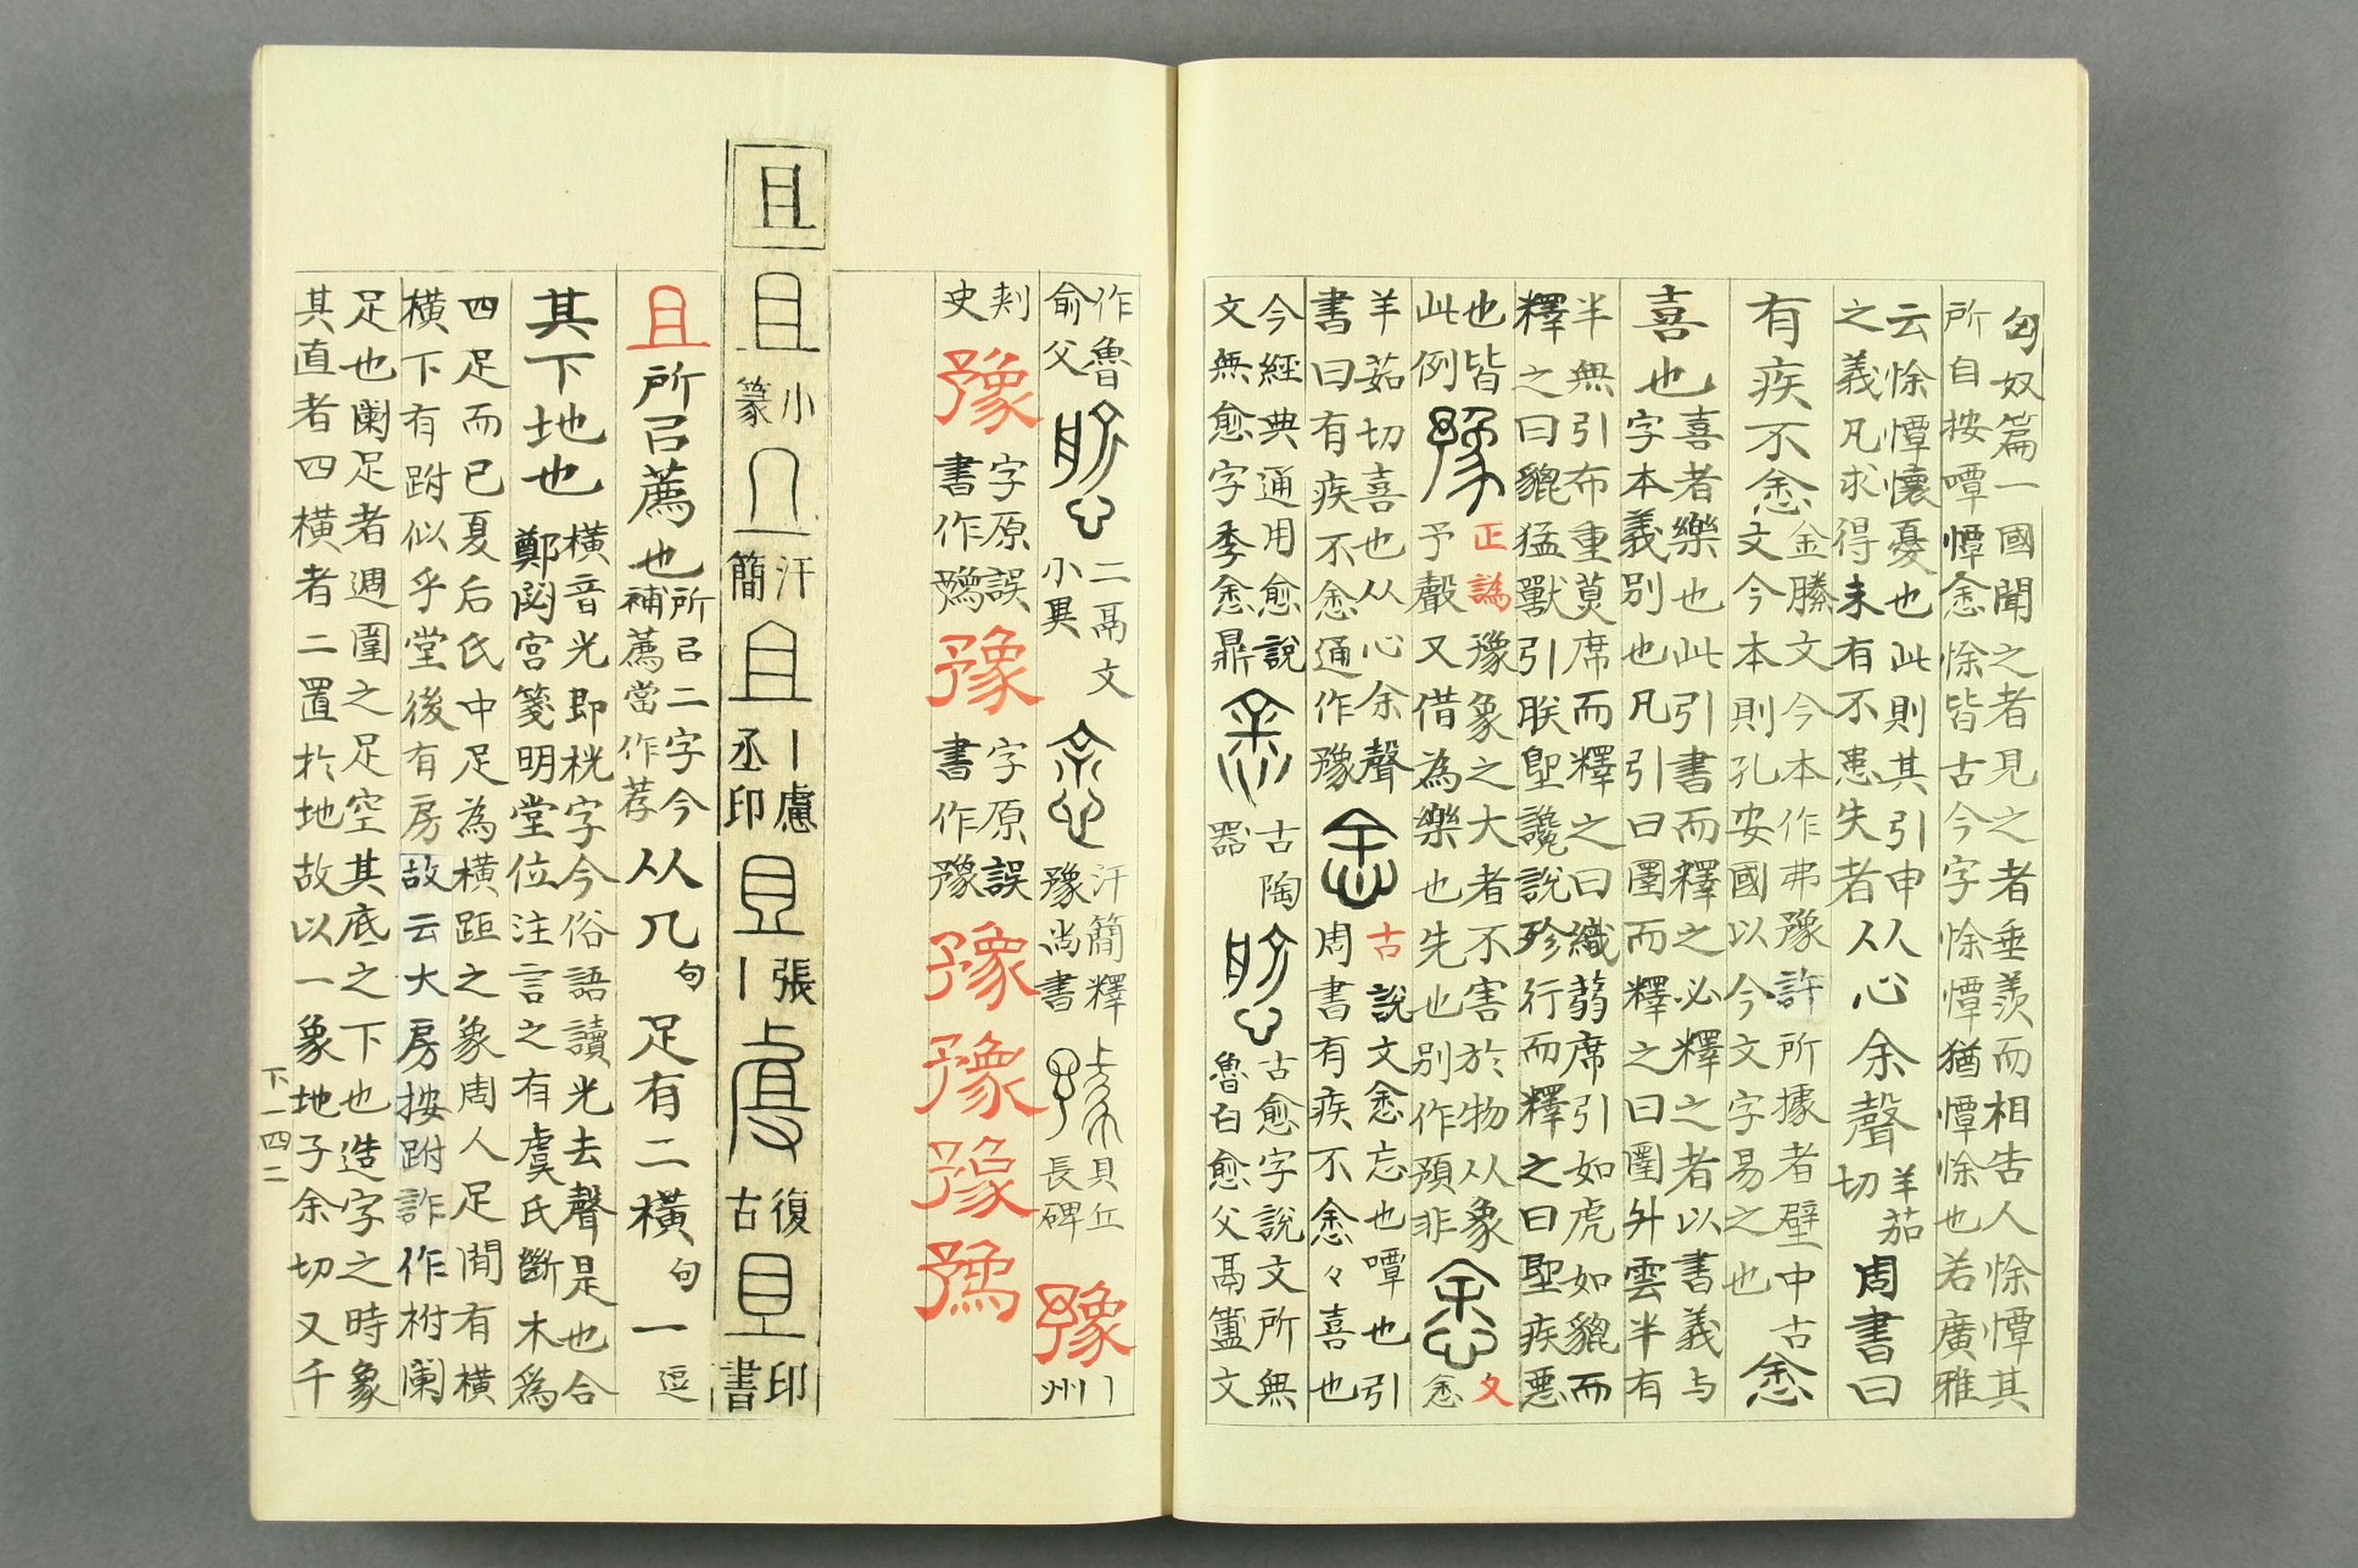 匈奴篇一國聞之者見之者垂羨而相告人悇憛其
所自按嘾憛悆悇皆古今字悇憛猶憛悇也若廣雅
云悇憛懷憂也此則其引申
之義凡求得未有不患失者
从心余聲
羊茹
切
周書曰
有疾不悆
金縢文今本作弗豫許所據者壁中古
文今本則孔安國以今文字易之也
悆
喜也
喜者樂也此引書而釋之必釋之者以書義与
字本義別也凡引曰圛而釋之曰圛升雲半有
半無引布重莫席而釋之曰織蒻席引如虎如貔而
釋之曰貔猛獸引朕堲讒說殄行而釋之曰堲疾惡
也皆
此例
正譌
豫象之大者不害於物从象
予聲又借為樂也先也別作預非
文
悆
羊茹切喜也从心余聲
書曰有疾不悆通作豫
古
說文悆忘也嘾也引
周書有疾不悆々喜也
今經典通用愈說
文無愈字季悆鼎
古陶
器
古愈字說文所無
魯白愈父鬲簠文
作魯
俞父
二鬲文
小異
汗簡釋
豫尚書
貝丘
長碑
豫
丨
州
刾
史
豫
字原誤
書作
豫
字原誤
書作豫
豫
豫
豫
豫
且
小
篆
汗
簡
丨慮
丞印
張
丨
復
古
印
書
且
所㠯薦也
所㠯二字今
補薦當作荐
从几
句
足有二橫
句
一
逗
其下地也
橫音光即桄字今俗語讀光去聲是也合
鄭閟宮箋明堂位注言之有虞氏斷木為
四足而已夏后氏中足為橫距之象周人足間有橫
橫下有跗似乎堂後有房故云大房按跗詐作柎闌
足也闌足者週圍之足空其底之下也造字之時象
其直者四橫者二置於地故以一象地子余切又千
下一四二